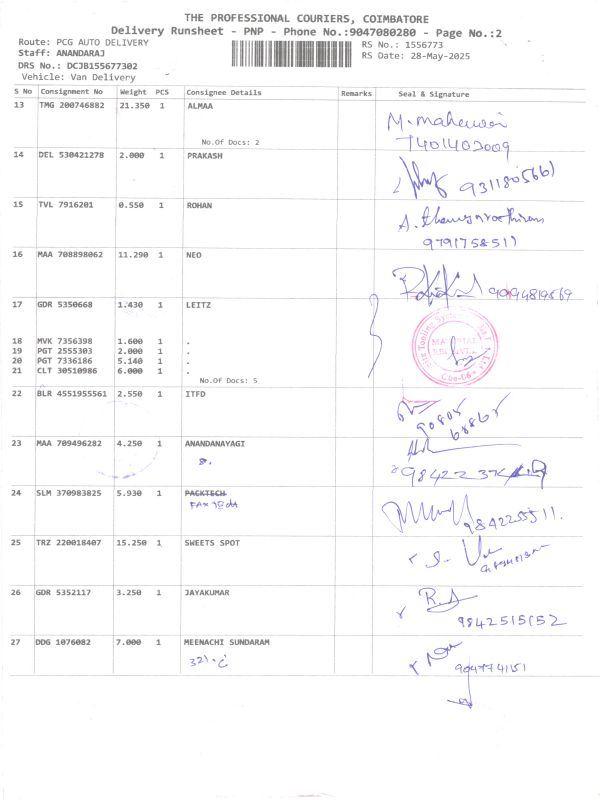 THE PROFESSIONAL COURIERS, COIMBATORE
Delivery Runsheet - PNP - Phone No.:9047080280 - Page No.:2
Route: PCG AUTO DELIVERY
RS No.: 1556773
Staff: ANANDARAJ
RS Date: 28-May-2025
DRS No.: DCJB155677302
Vehicle: Van Delivery
S No Consignment No Weight PCS Consignee Details Remarks Seal & Signature
13 TMG 200746882 21.350 1 ALMAA
M. maheswari
7401402009
No.Of Docs: 2
14 DEL 530421278 2.000 1 PRAKASH
9311805661
15 TVL 7916201 0.550 1 ROHAN
9791758511
16 MAA 708898062 11.290 1 NEO
9094819569
17 GDR 5350668 1.430 1 LEITZ
18 MVK 7356398 1.600 1 .
19 PGT 2555303 2.000 1 .
20 PGT 7336186 5.140 1 .
21 CLT 30510986 6.000 1 .
No.Of Docs: 5
22 BLR 4551955561 2.550 1 ITFD
90805
68865
23 MAA 709496282 4.250 1 ANANDANAYAGI
24 SLM 370983825 5.930 1 PACKTECH
9842255511.
25 TRZ 220018407 15.250 1 SWEETS SPOT
26 GDR 5352117 3.250 1 JAYAKUMAR
9842515152
27 DDG 1076082 7.000 1 MEENACHI SUNDARAM
321.C
9047741151